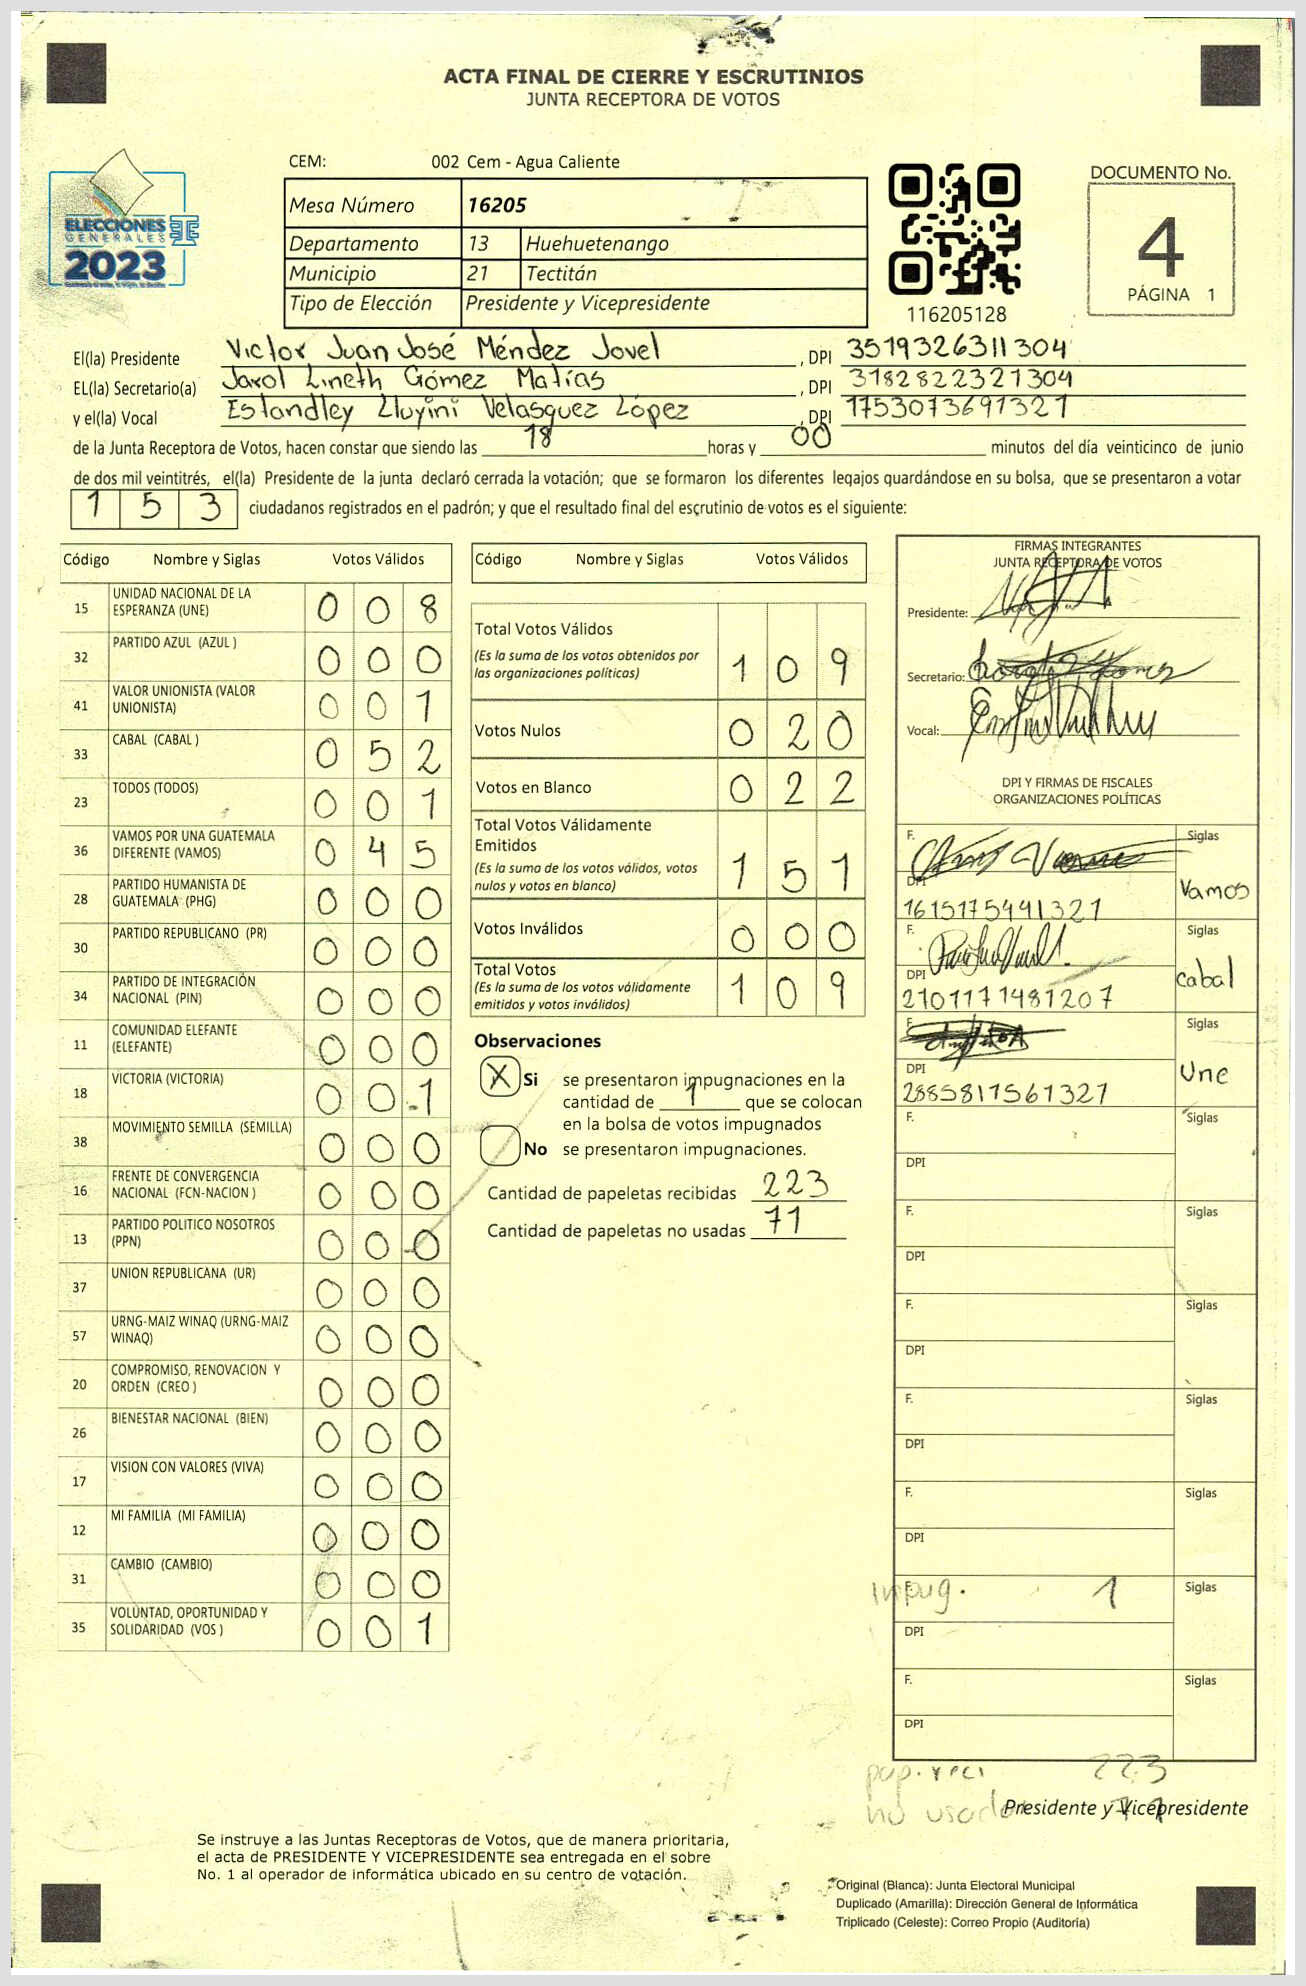 ACTA FINAL DE CIERRE Y ESCRUTINIOS
JUNTA RECEPTORA DE VOTOS
CEM: 002 Cem - Agua Caliente
ELECCIONES
GENERALES
2023
Mesa Número 16205
Departamento 13 Huehuetenango
Municipio 21 Tectitán
Tipo de Elección Presidente y Vicepresidente
116205128
DOCUMENTO No.
4
PÁGINA 1
El(la) Presidente Victor Juan José Méndez Jovel , DPI 3519326311304
EL(la) Secretario(a) Jarol Lineth Gómez Matías , DPI 3182822321304
y el(la) Vocal Estandley Lluyini Velasquez López , DPI 1753073691321
de la Junta Receptora de Votos, hacen constar que siendo las 18 horas y 00 minutos del día veinticinco de junio
de dos mil veintitrés, el(la) Presidente de la junta declaró cerrada la votación; que se formaron los diferentes legajos guardándose en su bolsa, que se presentaron a votar
1 5 3 ciudadanos registrados en el padrón; y que el resultado final del escrutinio de votos es el siguiente:
Código Nombre y Siglas Votos Válidos
15 UNIDAD NACIONAL DE LA
ESPERANZA (UNE) 0 0 8
32 PARTIDO AZUL (AZUL ) 0 0 0
41 VALOR UNIONISTA (VALOR
UNIONISTA) 0 0 1
33 CABAL (CABAL ) 0 5 2
23 TODOS (TODOS) 0 0 1
36 VAMOS POR UNA GUATEMALA
DIFERENTE (VAMOS) 0 4 5
28 PARTIDO HUMANISTA DE
GUATEMALA (PHG) 0 0 0
30 PARTIDO REPUBLICANO (PR) 0 0 0
34 PARTIDO DE INTEGRACIÓN
NACIONAL (PIN) 0 0 0
11 COMUNIDAD ELEFANTE
(ELEFANTE) 0 0 0
18 VICTORIA (VICTORIA) 0 0 1
38 MOVIMIENTO SEMILLA (SEMILLA) 0 0 0
16 FRENTE DE CONVERGENCIA
NACIONAL (FCN-NACION ) 0 0 0
13 PARTIDO POLITICO NOSOTROS
(PPN) 0 0 0
37 UNION REPUBLICANA (UR) 0 0 0
57 URNG-MAIZ WINAQ (URNG-MAIZ
WINAQ) 0 0 0
20 COMPROMISO, RENOVACION Y
ORDEN (CREO ) 0 0 0
26 BIENESTAR NACIONAL (BIEN) 0 0 0
17 VISION CON VALORES (VIVA) 0 0 0
12 MI FAMILIA (MI FAMILIA) 0 0 0
31 CAMBIO (CAMBIO) 0 0 0
35 VOLUNTAD, OPORTUNIDAD Y
SOLIDARIDAD (VOS ) 0 0 1
Código Nombre y Siglas Votos Válidos
Total Votos Válidos
(Es la suma de los votos obtenidos por
las organizaciones políticas) 1 0 9
Votos Nulos 0 2 0
Votos en Blanco 0 2 2
Total Votos Válidamente
Emitidos
(Es la suma de los votos válidos, votos
nulos y votos en blanco) 1 5 1
Votos Inválidos 0 0 0
Total Votos
(Es la suma de los votos válidamente
emitidos y votos inválidos) 1 0 9
Observaciones
X Si se presentaron impugnaciones en la
cantidad de 1 que se colocan
en la bolsa de votos impugnados
No se presentaron impugnaciones.
Cantidad de papeletas recibidas 223
Cantidad de papeletas no usadas 71
FIRMAS INTEGRANTES
JUNTA RECEPTORA DE VOTOS
Presidente:
Secretario:
Vocal:
DPI Y FIRMAS DE FISCALES
ORGANIZACIONES POLÍTICAS
F. Siglas
DPI Vamos
1615175441321
F. Siglas
DPI Cabal
2101171481207
F. Siglas
DPI Une
2885817561327
F. Siglas
DPI
F. Siglas
DPI
F. Siglas
DPI
F. Siglas
DPI
F. Siglas
DPI
F. Siglas
impug. 1
DPI
F. Siglas
DPI
pap. reci 223
no usadas 71
Presidente y Vicepresidente
Se instruye a las Juntas Receptoras de Votos, que de manera prioritaria,
el acta de PRESIDENTE Y VICEPRESIDENTE sea entregada en el sobre
No. 1 al operador de informática ubicado en su centro de votación.
Original (Blanca): Junta Electoral Municipal
Duplicado (Amarilla): Dirección General de Informática
Triplicado (Celeste): Correo Propio (Auditoría)